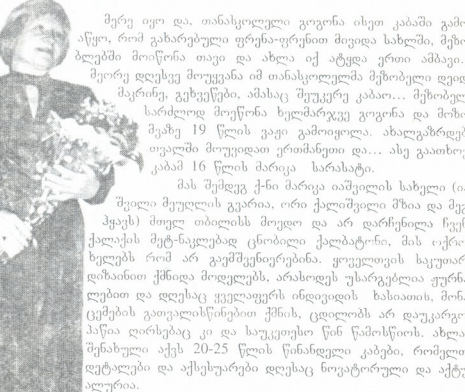 მერე იყო და, თანასკოლელი გოგონა ისეთ კაბაში გამო
აწყო, რომ გახარებული ფრენა-ფრენით მივიდა სახლში, მეზო
ბლებში მოიწონა თავი და ახლა იქ ატყდა ერთი ამბავი.
მეორე დღესვე მოუყვანა იმ თანასკოლელმა მეზობელი დეიდ
მაკრინე, გეხვეწები, ამასაც შეუკერე კაბაო... მეზობელ
სარძლოდ მოეწონა ხელმარჯვე გოგონა და მოზო
მვაზე 19 წლის ვაჟი გამოიყოლა. ახალგაზრდებ
თვალში მოუვიდათ ერთმანეთი და... ასე გაათხოვ
კაბამ 16 წლის მარიკა სარასატი.
მას შემდეგ ქ-ნი მარიკა იაშვილის სახელი (ია
შვილი მეუღლის გვარია, ორი ქალიშვილი მზია და მეგ
ჰყავს) მთელ თბილისს მოედო და არ დარჩენილა ჩვენ
ქალაქის მეტ-ნაკლებად ცნობილი ქალბატონი, მის ოქრო
ხელებს რომ არ გაემშვენიერებინა. ყოველთვის საკუთარ
დიზაინით ქმნიდა მოდელებს, არასოდეს უსარგებლია ჟურნა
ლებით და დღესაც ყველაფერს ინდივიდის ხასიათის, მონა
ცემების გათვალისწინებით ქმნის, ცდილობს არ დაუკარგო
პაწია ღირსებაც კი და საუკეთესო წინ წამოსწიოს. ახლა
შენახული აქვს 20-25 წლის წინანდელი კაბები, რომელთ
დეტალები და აქსესუარები დღესაც ნოვატორული და აქტუ
ალურია.